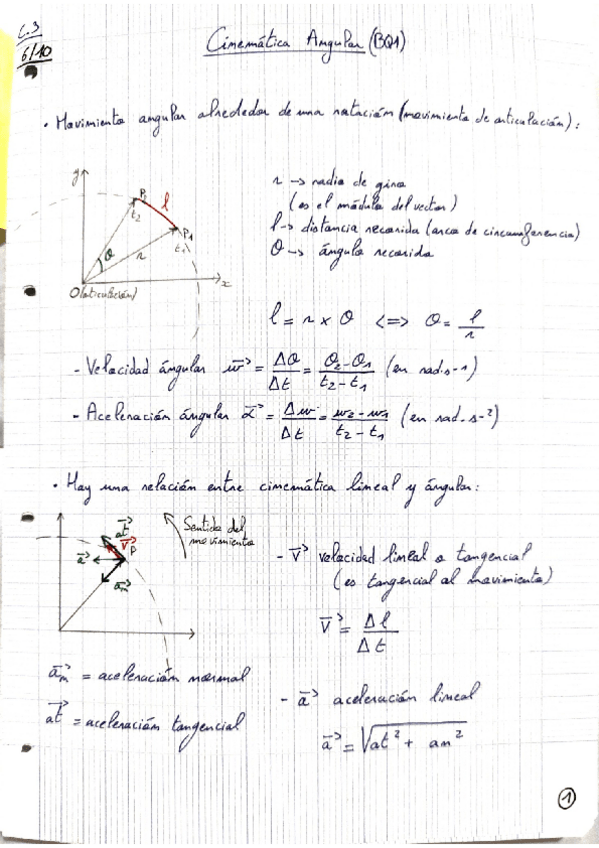 C.3
6/10
Cinemática Angular (BQ1)
• Movimiento angular alrededor de una rotación (movimiento de articulación):
y
P2
l
t2
P1
t1
θ
r
O(articulación)
x
r -> radio de giro
(es el módulo del vector)
l -> distancia recorrida (arco de circumferencia)
θ -> ángulo recorrido
l = r x θ <=> θ = l/r
- Velocidad ángular w⃗ = Δθ/Δt = θ2-θ1/t2-t1 (en rad.s-1)
- Aceleración ángular α⃗ = Δw/Δt = w2-w1/t2-t1 (en rad.s-2)
• Hay una relación entre cinemática lineal y ángular:
Sentido del
movimiento
at⃗
v⃗
P
a⃗
an⃗
- V⃗ velocidad lineal o tangencial
(es tangencial al movimiento)
V⃗ = Δl/Δt
an⃗ = aceleración normal
at⃗ = aceleración tangencial
- a⃗ aceleración lineal
a⃗ = √at² + an²
1